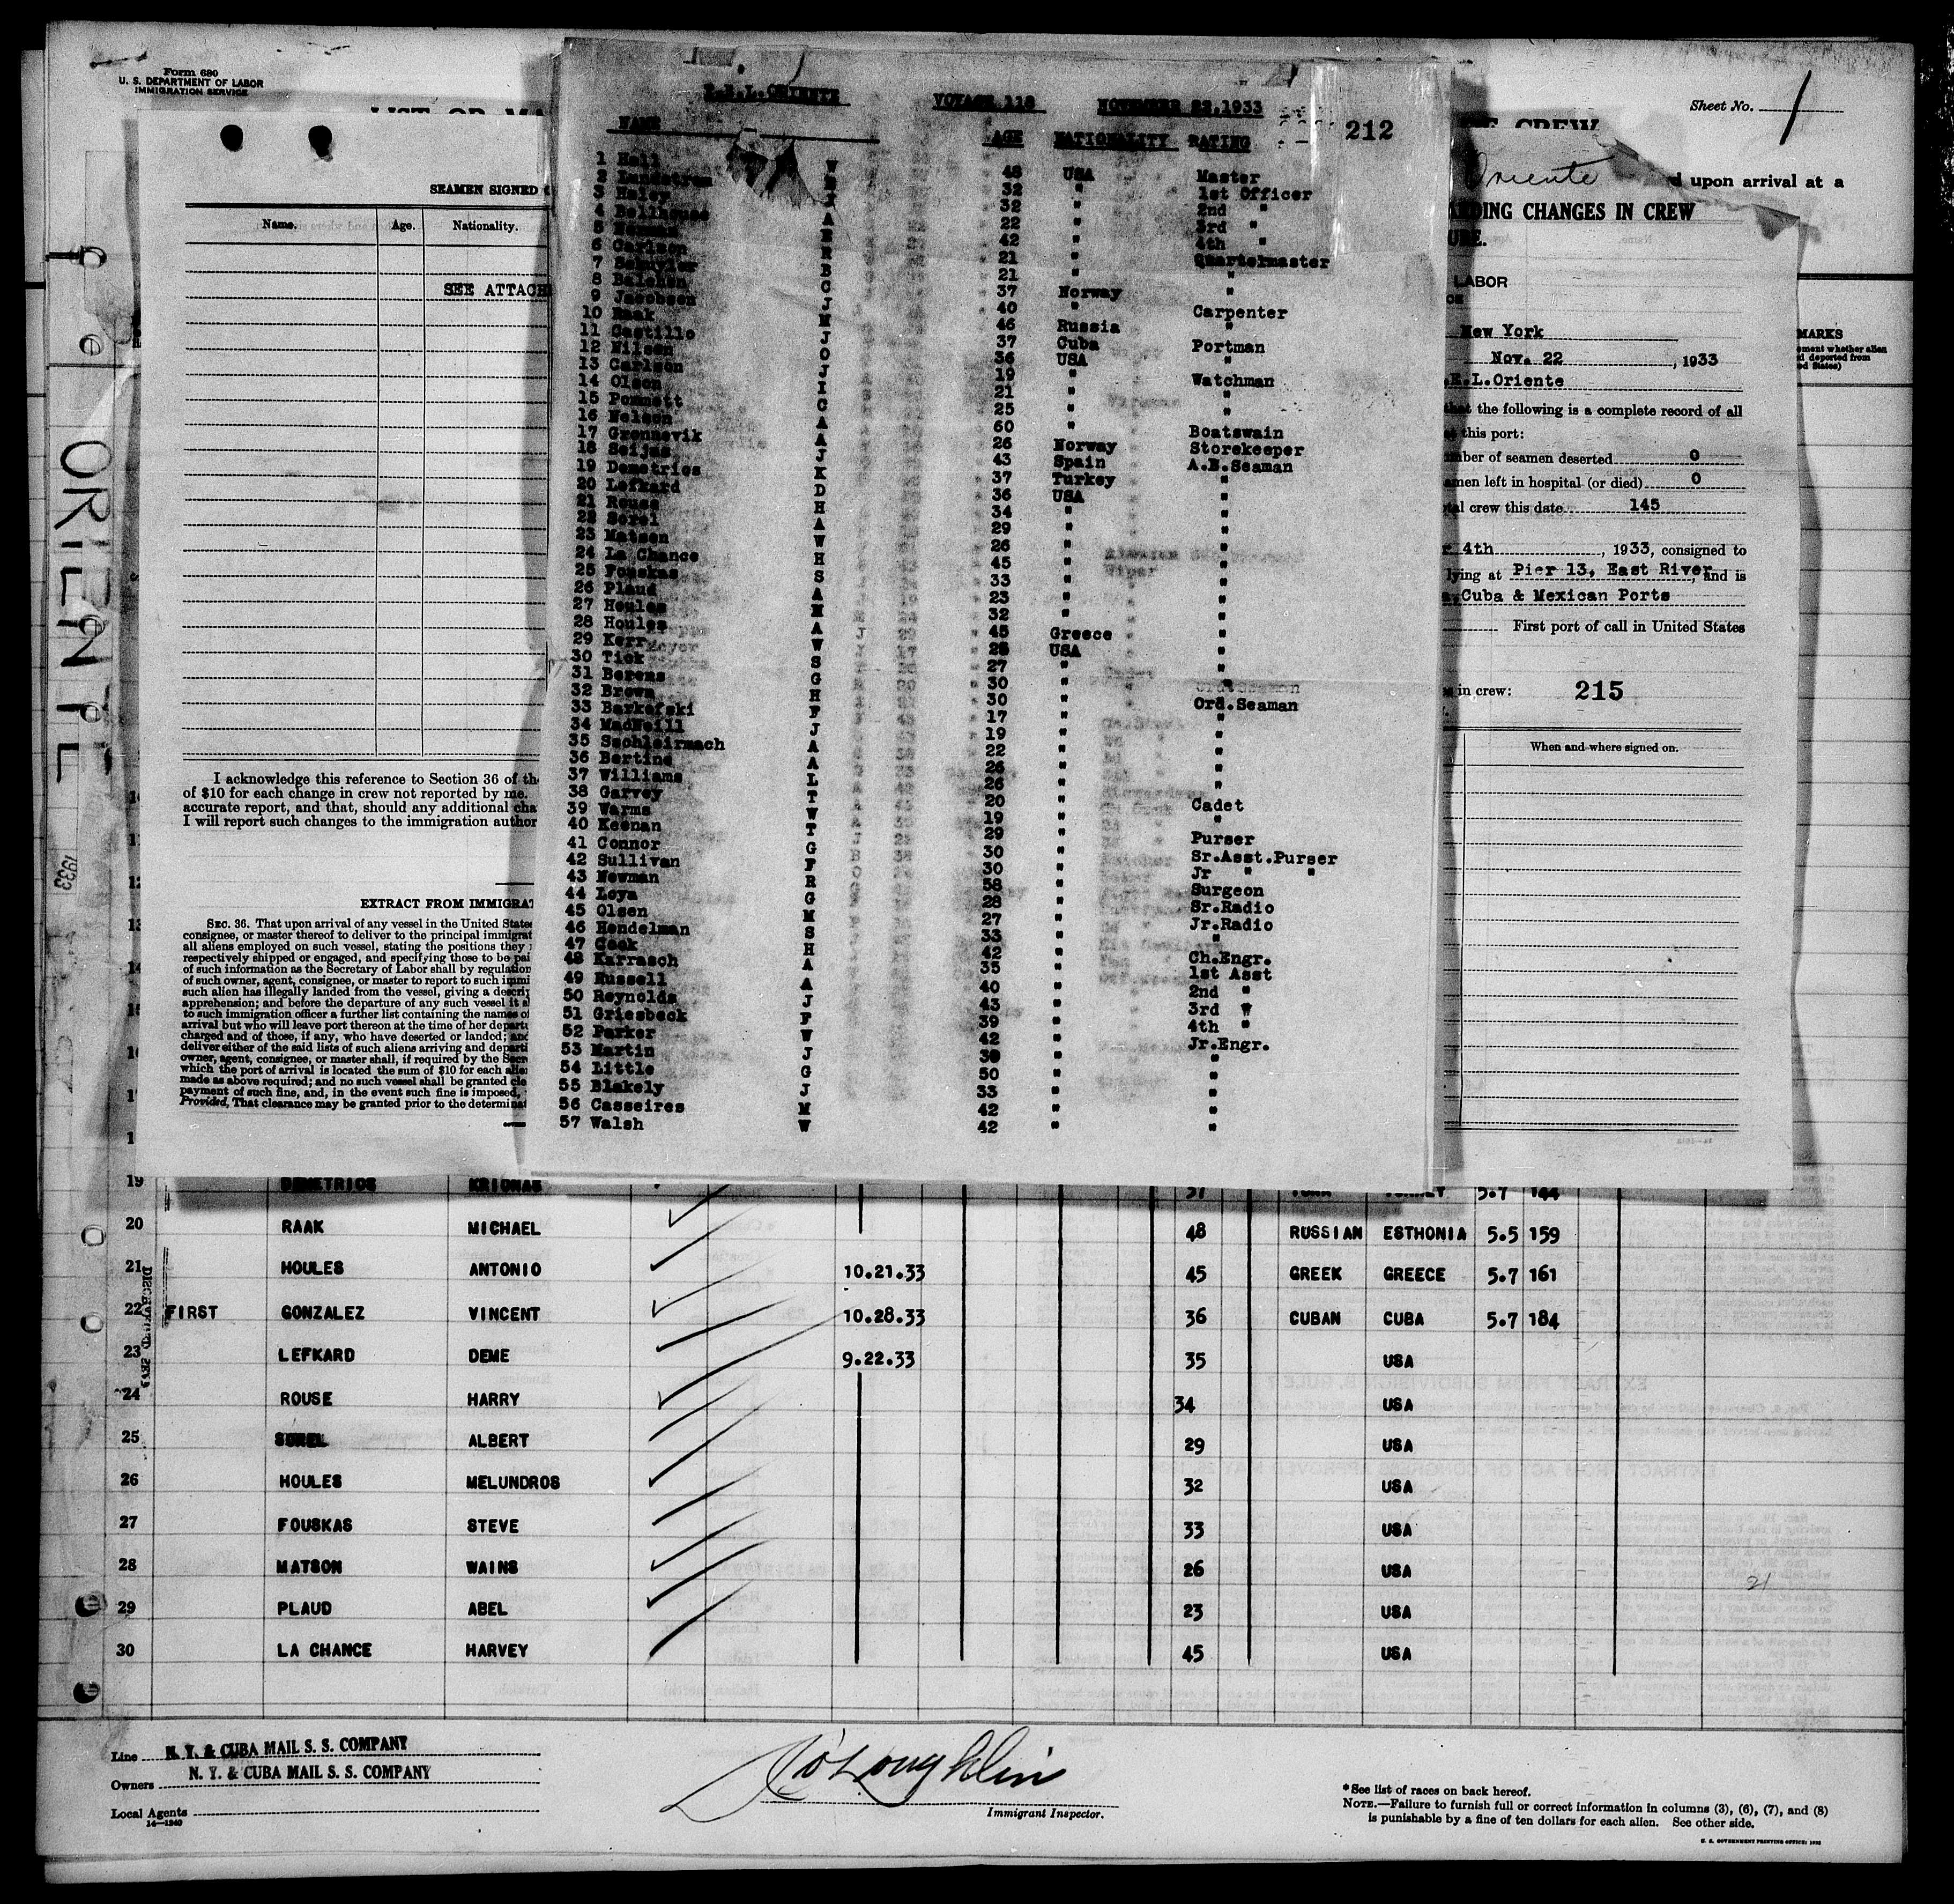 Form 680
U. S. DEPARTMENT OF LABOR
IMMIGRATION SERVICE
Sheet No. 1
Oriente
d upon arrival at a
SEAMEN SIGNED
Name. Age. Nationality.
SEE ATTACH
I acknowledge this reference to Section 36 of th
of $10 for each change in crew not reported by me.
accurate report, and that, should any additional cha
I will report such changes to the immigration author
EXTRACT FROM IMMIGRAT
SEC. 36. That upon arrival of any vessel in the United State
consignee, or master thereof to deliver to the principal immigrat
all aliens employed on such vessel, stating the positions they
respectively shipped or engaged, and specifying those to be pai
of such information as the Secretary of Labor shall by regulation
of such owner, agent, consignee, or master to report to such immi
such alien has illegally landed from the vessel, giving a descrip
apprehension; and before the departure of any such vessel it s
to such immigration officer a further list containing the names of
arrival but who will leave port thereon at the time of her departu
charged and of those, if any, who have deserted or landed; and
deliver either of the said lists of such aliens arriving and departi
owner, agent, consignee, or master shall, if required by the Secr
which the port of arrival is located the sum of $10 for each alien
made as above required; and no such vessel shall be granted cle
payment of such fine, and, in the event such fine is imposed,
Provided, That clearance may be granted prior to the determinat
T.E.L.ORIENTE VOYAGE 118 NOVEMBER 22,1933
212
NAME AGE NATIONALITY RATING
1 Hall W 48 USA Master
2 Lundstrom 32 " 1st Officer
3 Haley J 32 " 2nd "
4 Bellhouse A 22 " 3rd "
5 Norman E 42 " 4th "
6 Carlson R 21 " Quartelmaster
7 Schuyler B 21 " "
8 Balchen C 37 Norway "
9 Jacobsen J 40 " Carpenter
10 Raak M 46 Russia "
11 Castillo J 37 Cuba Portman
12 Nilsen O 36 USA "
13 Carlson J 19 " Watchman
14 Olson I 21 " "
15 Pommett C 25 " "
16 Nelson A 60 " Boatswain
17 Gronnevik A 26 Norway Storekeeper
18 Seijas J 43 Spain A.B.Seaman
19 Demetrios K 37 Turkey "
20 Lefkard D 36 USA "
21 Rouse H 34 " "
22 Sorel A 29 " "
23 Matson W 26 " "
24 La Chance H 45 " "
25 Fouskas S 33 " "
26 Plaud A 23 " "
27 Houles M 32 " "
28 Houles A 45 Greece "
29 Kerr W 28 USA "
30 Tick S 27 " "
31 Berens G 30 " "
32 Brown H 30 " Ord.Seaman
33 Barkofski F 17 " "
34 MadNeill J 19 " "
35 Sschleirmach A 22 " "
36 Bertine A 26 " "
37 Williams L 26 " "
38 Garvey T 20 " Cadet
39 Warms W 19 " "
40 Keenan T 29 " Purser
41 Connor G 30 " Sr.Asst.Purser
42 Sullivan F 30 " Jr " "
43 Newman R 58 " Surgeon
44 Loya G 28 " Sr.Radio
45 Olsen M 27 " Jr.Radio
46 Hendelman S 33 " "
47 Cook H 42 " Ch.Engr.
48 Karrasch A 35 " 1st Asst
49 Russell A 40 " 2nd "
50 Reynolds J 43 " 3rd "
51 Griesbeck F 39 " 4th "
52 Parker W 42 " Jr.Engr.
53 Martin J 30 " "
54 Little G 50 " "
55 Blakely J 33 " "
56 Casseires M 42 " "
57 Walsh W 42 " "
DING CHANGES IN CREW
URE.
LABOR
New York
Nov. 22, 1933
.E.L.Oriente
that the following is a complete record of all
this port:
mber of seamen deserted 0
amen left in hospital (or died) 0
tal crew this date 145
r 4th, 1933, consigned to
lying at Pier 13, East River, and is
Cuba & Mexican Ports
First port of call in United States
in crew: 215
When and where signed on.
MARKS
ement whether alien
d deported from
ed States)
ORIENTE
1933
19 DEMETRIOS KRIONAS 37 TURK TURKEY 5.7 144
20 RAAK MICHAEL 48 RUSSIAN ESTHONIA 5.5 159
21 HOULES ANTONIO 10.21.33 45 GREEK GREECE 5.7 161
22 FIRST GONZALEZ VINCENT 10.28.33 36 CUBAN CUBA 5.7 184
23 LEFKARD DEME 9.22.33 35 USA
24 ROUSE HARRY 34 USA
25 SOREL ALBERT 29 USA
26 HOULES MELUNDROS 32 USA
27 FOUSKAS STEVE 33 USA
28 MATSON WAINS 26 USA
29 PLAUD ABEL 23 USA
30 LA CHANCE HARVEY 45 USA
21
Line N. Y. & CUBA MAIL S. S. COMPANY
Owners N. Y. & CUBA MAIL S. S. COMPANY
Local Agents
14—1240
O'Loughlin
Immigrant Inspector.
*See list of races on back hereof.
NOTE.—Failure to furnish full or correct information in columns (3), (6), (7), and (8)
is punishable by a fine of ten dollars for each alien. See other side.
U. S. GOVERNMENT PRINTING OFFICE: 1932